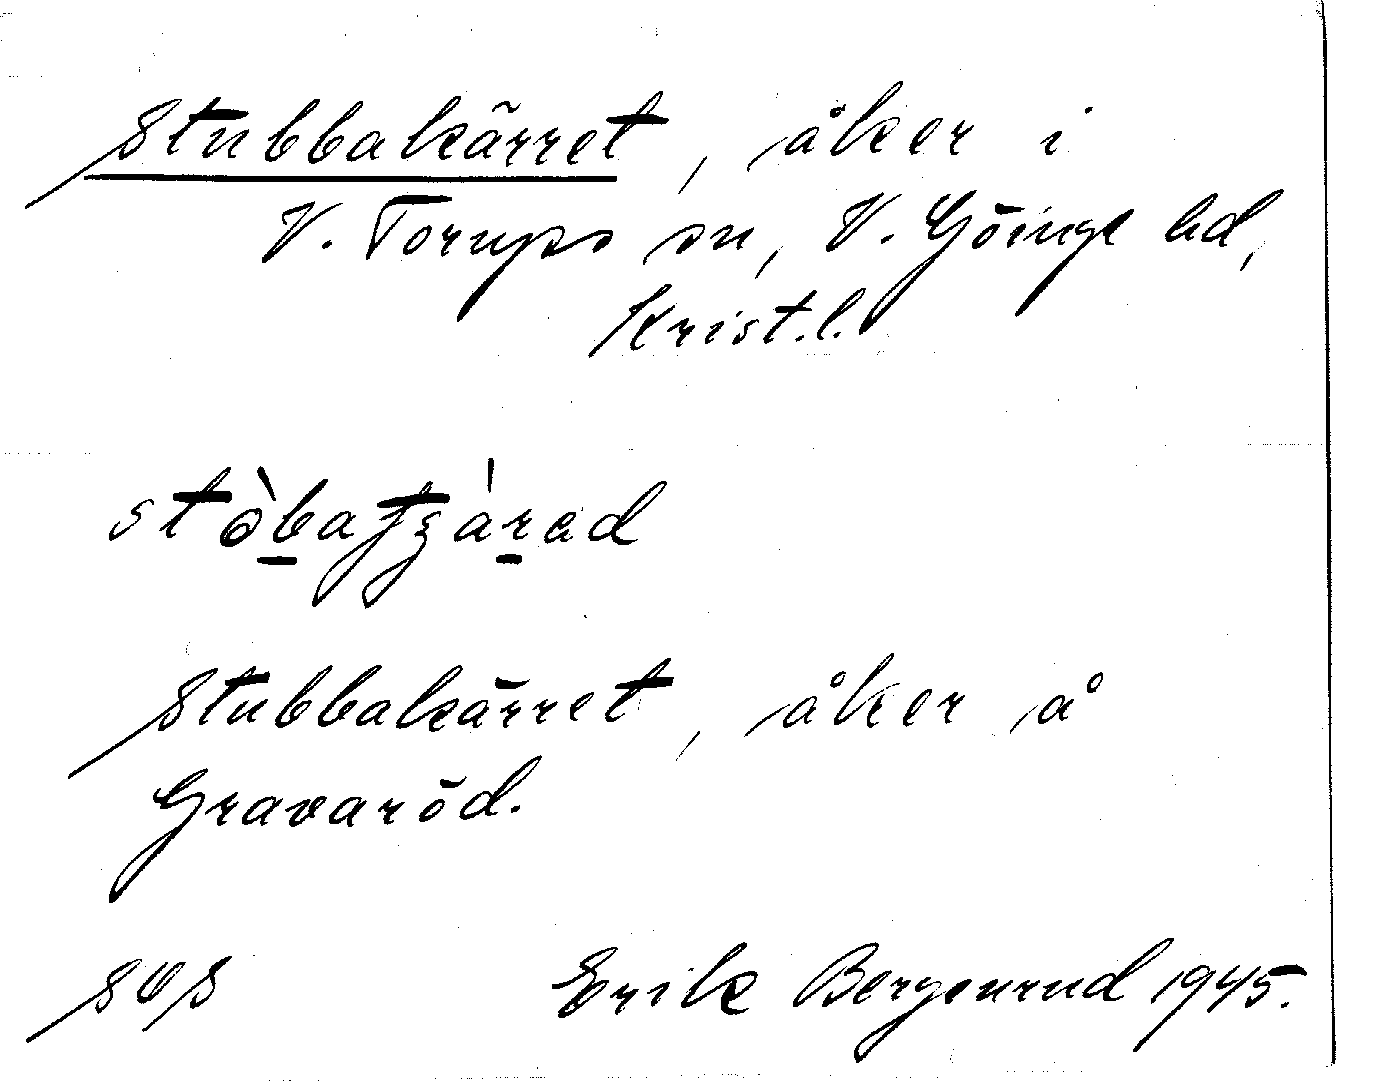 Stubbakärret, åker i
V. Torups sn, V. Göinge hd,
Krist.l.
Stubbakärret, åker å
Gravaröd.
Erik Bergenrud 1945.